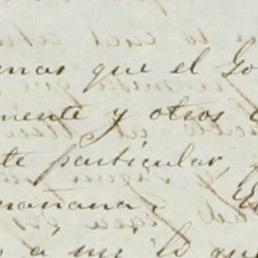 que el Go
mente y otros
te particular,
mañana. El
a me lo que